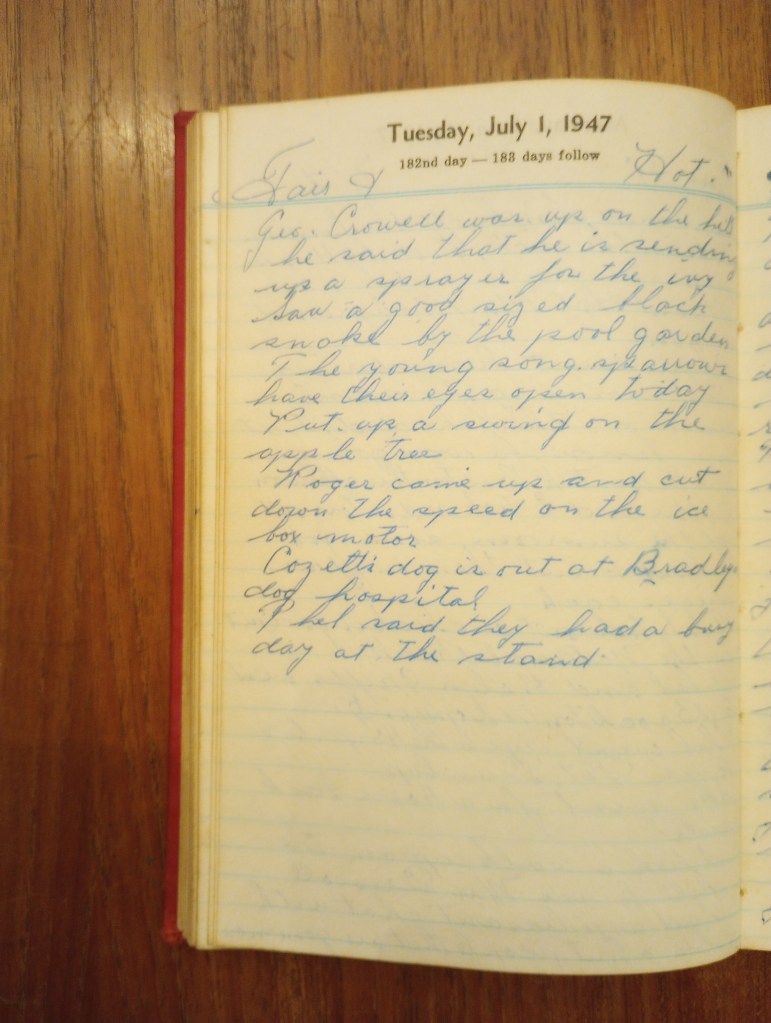 Tuesday, July 1, 1947
182nd day — 183 days follow
Fair & Hot.
Geo. Crowell was up on the hill
he said that he is sending
up a sprayer for the ivy
Saw a good sized black
snake by the pool garden
The young song sparrows
have their eyes open today
Put up a swing on the
apple tree
Roger came up and cut
down the speed on the ice
box motor
Cozetti dog is out at Bradley
dog hospital
Phel said they had a busy
day at the stand